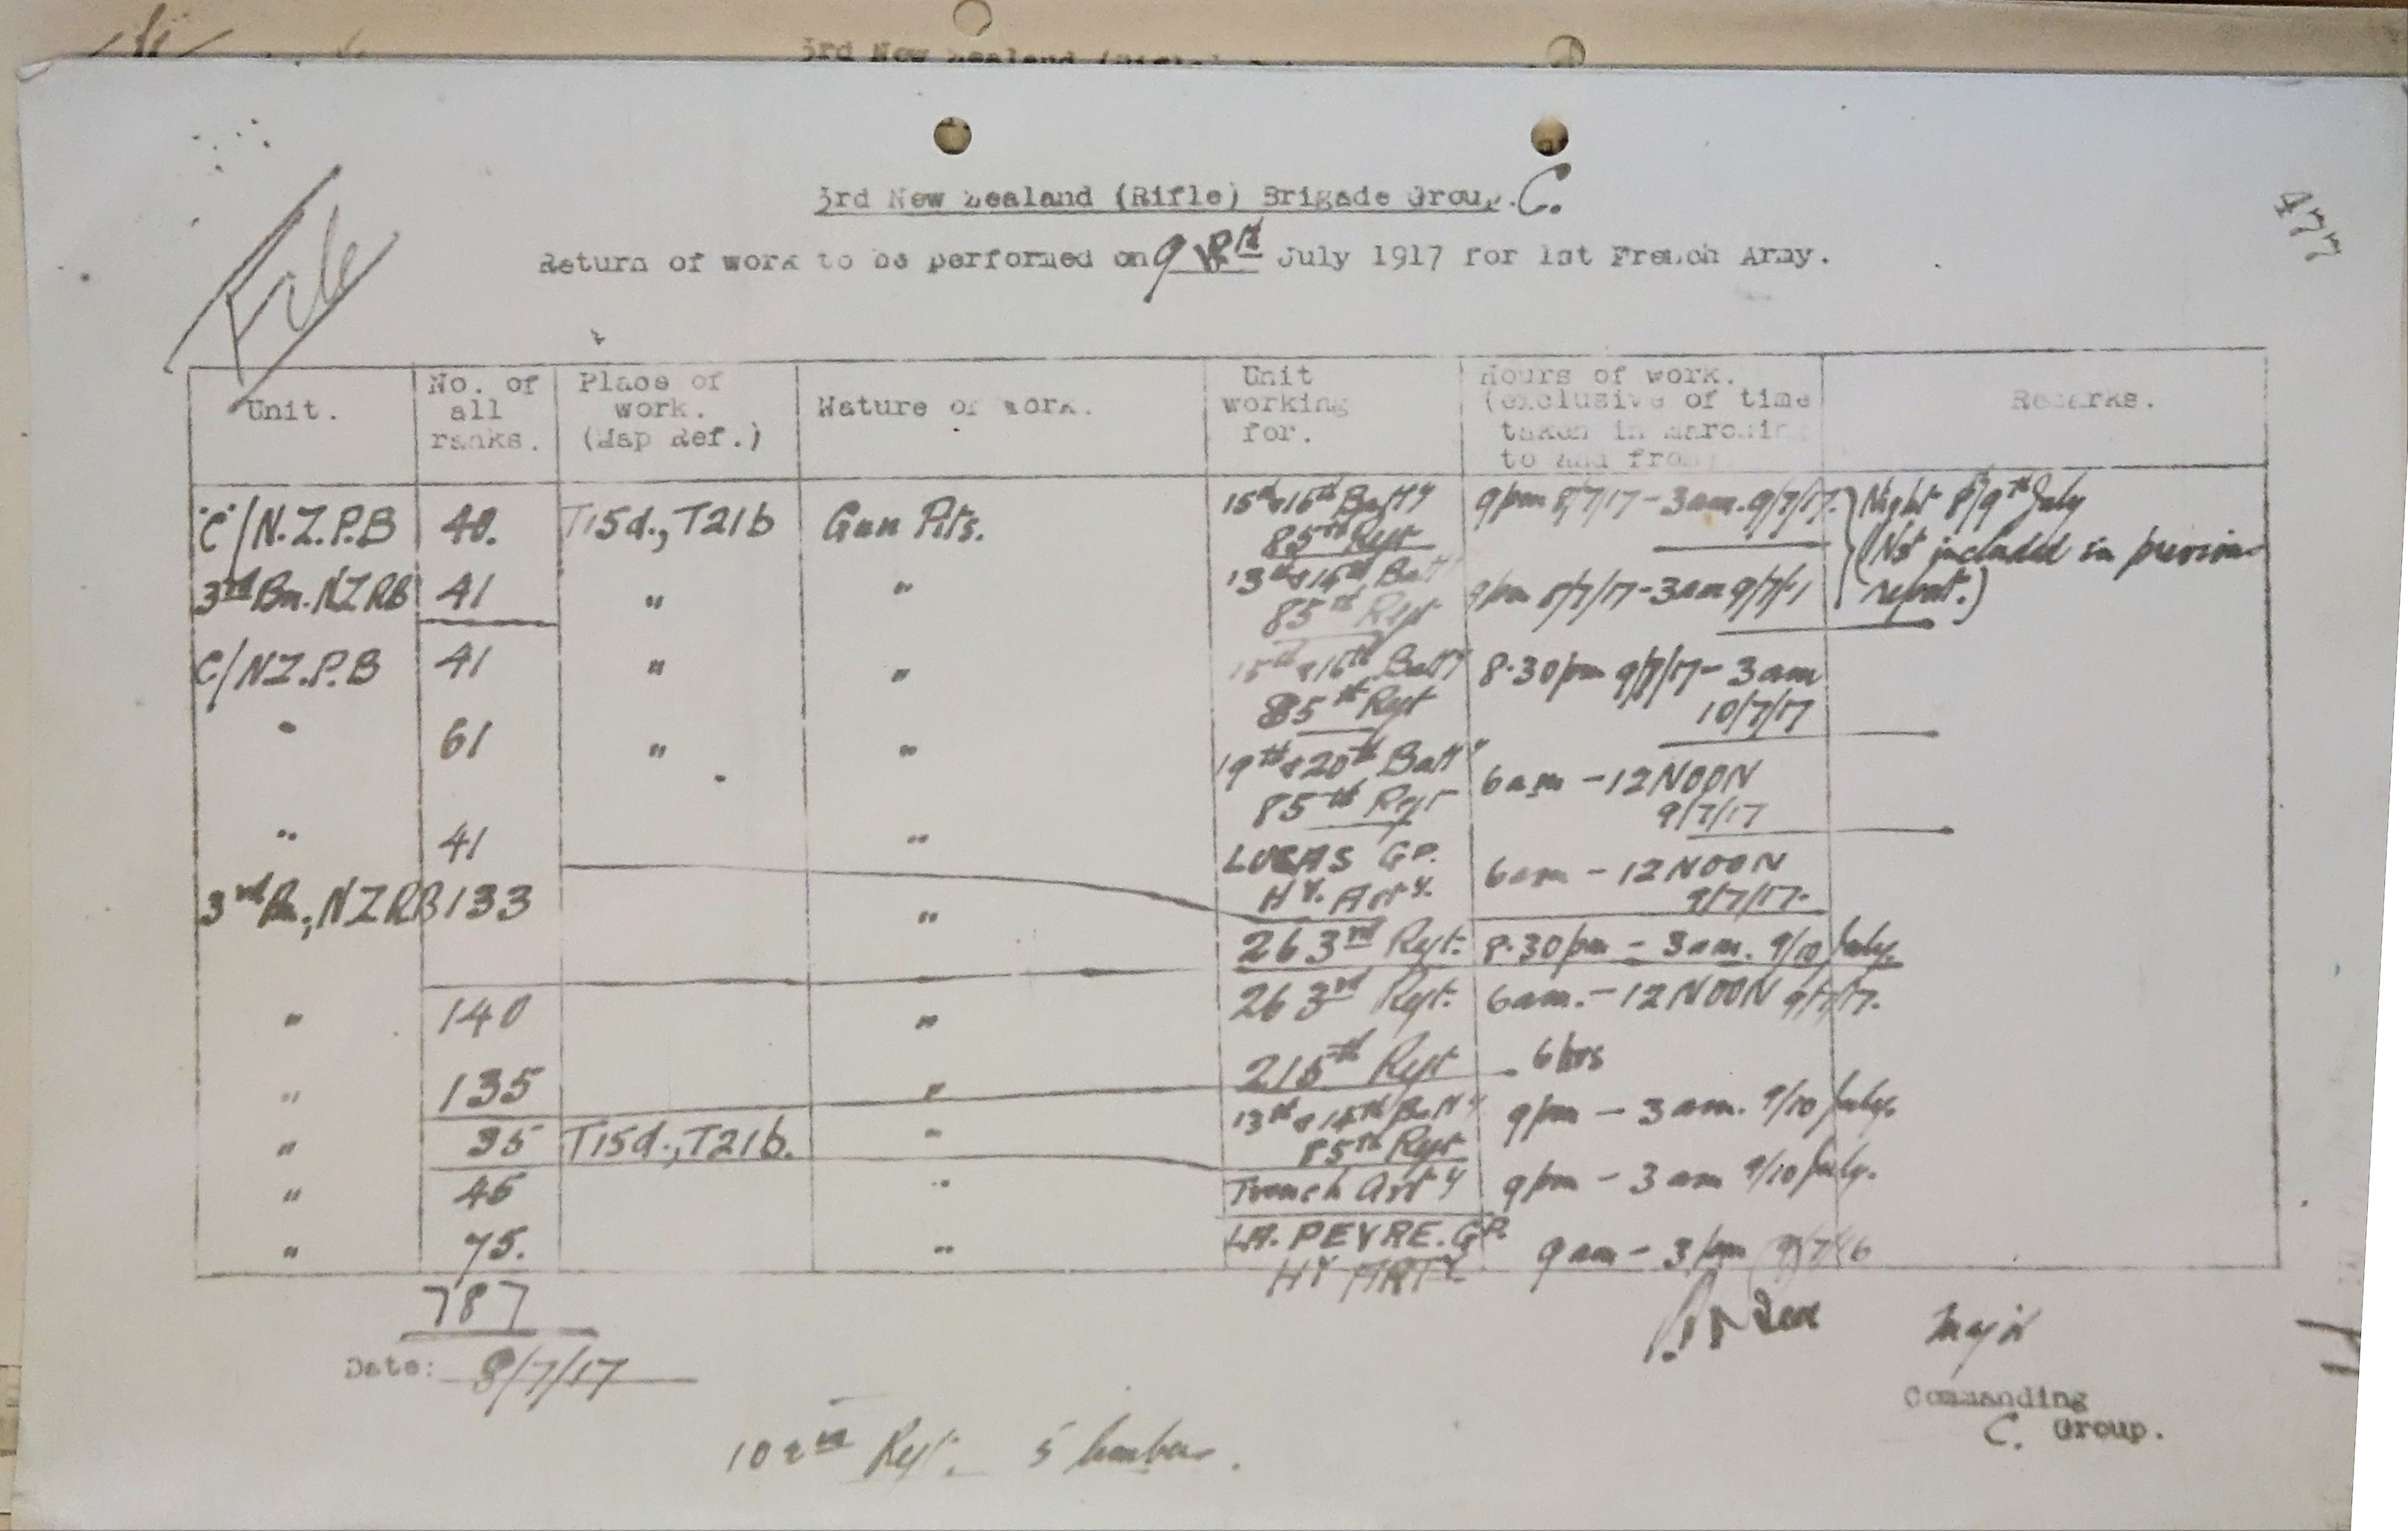 3rd New Zealand (Rifle)
3rd New Zealand (Rifle) Brigade Group. C.
477
File
Return of work to be performed on 9th July 1917 for 1st French Army.
Unit. No. of all ranks. Place of work. (Map Ref.) Nature of work. Unit working for. Hours of work. (exclusive of time taken in marching to and from) Remarks.
"C"/N.Z.P.B 40. T15d., T21b Gun Pits. 15th & 16th Batty 85th Regt 9pm 8/7/17 - 3am. 9/7/17. Night 8/9th July
3rd Bn. NZRB 41 " " 13th & 14th Batty 85th Regt 9pm 8/7/17 - 3am 9/7/17 (Not included in previous report.)
C/NZ.P.B 41 " " 15th & 16th Batty 85th Regt 8.30pm 9/7/17 - 3am 10/7/17
" 61 " " 19th & 20th Batty 85th Regt 6am - 12 NOON 9/7/17
" 41 " LUCAS GP. HY. ARTY. 6am - 12 NOON 9/7/17.
3rd Bn., NZRB 133 " 263rd Regt. 8.30pm - 3am. 9/10 July.
" 140 " 263rd Regt. 6am. - 12 NOON 9/7/17.
" 135 " 215th Regt 6 hrs
" 35 T15d., T21b. " 13th & 14th Batty 85th Regt 9pm - 3am. 9/10 July.
" 45 " Trench Arty 9pm - 3am 9/10 July.
" 75. " LA. PEYRE. GP. HY ARTY 9am - 3pm
787
Major
Date: 8/7/17
Commanding
C. Group.
102nd Regt. 5 limbers.